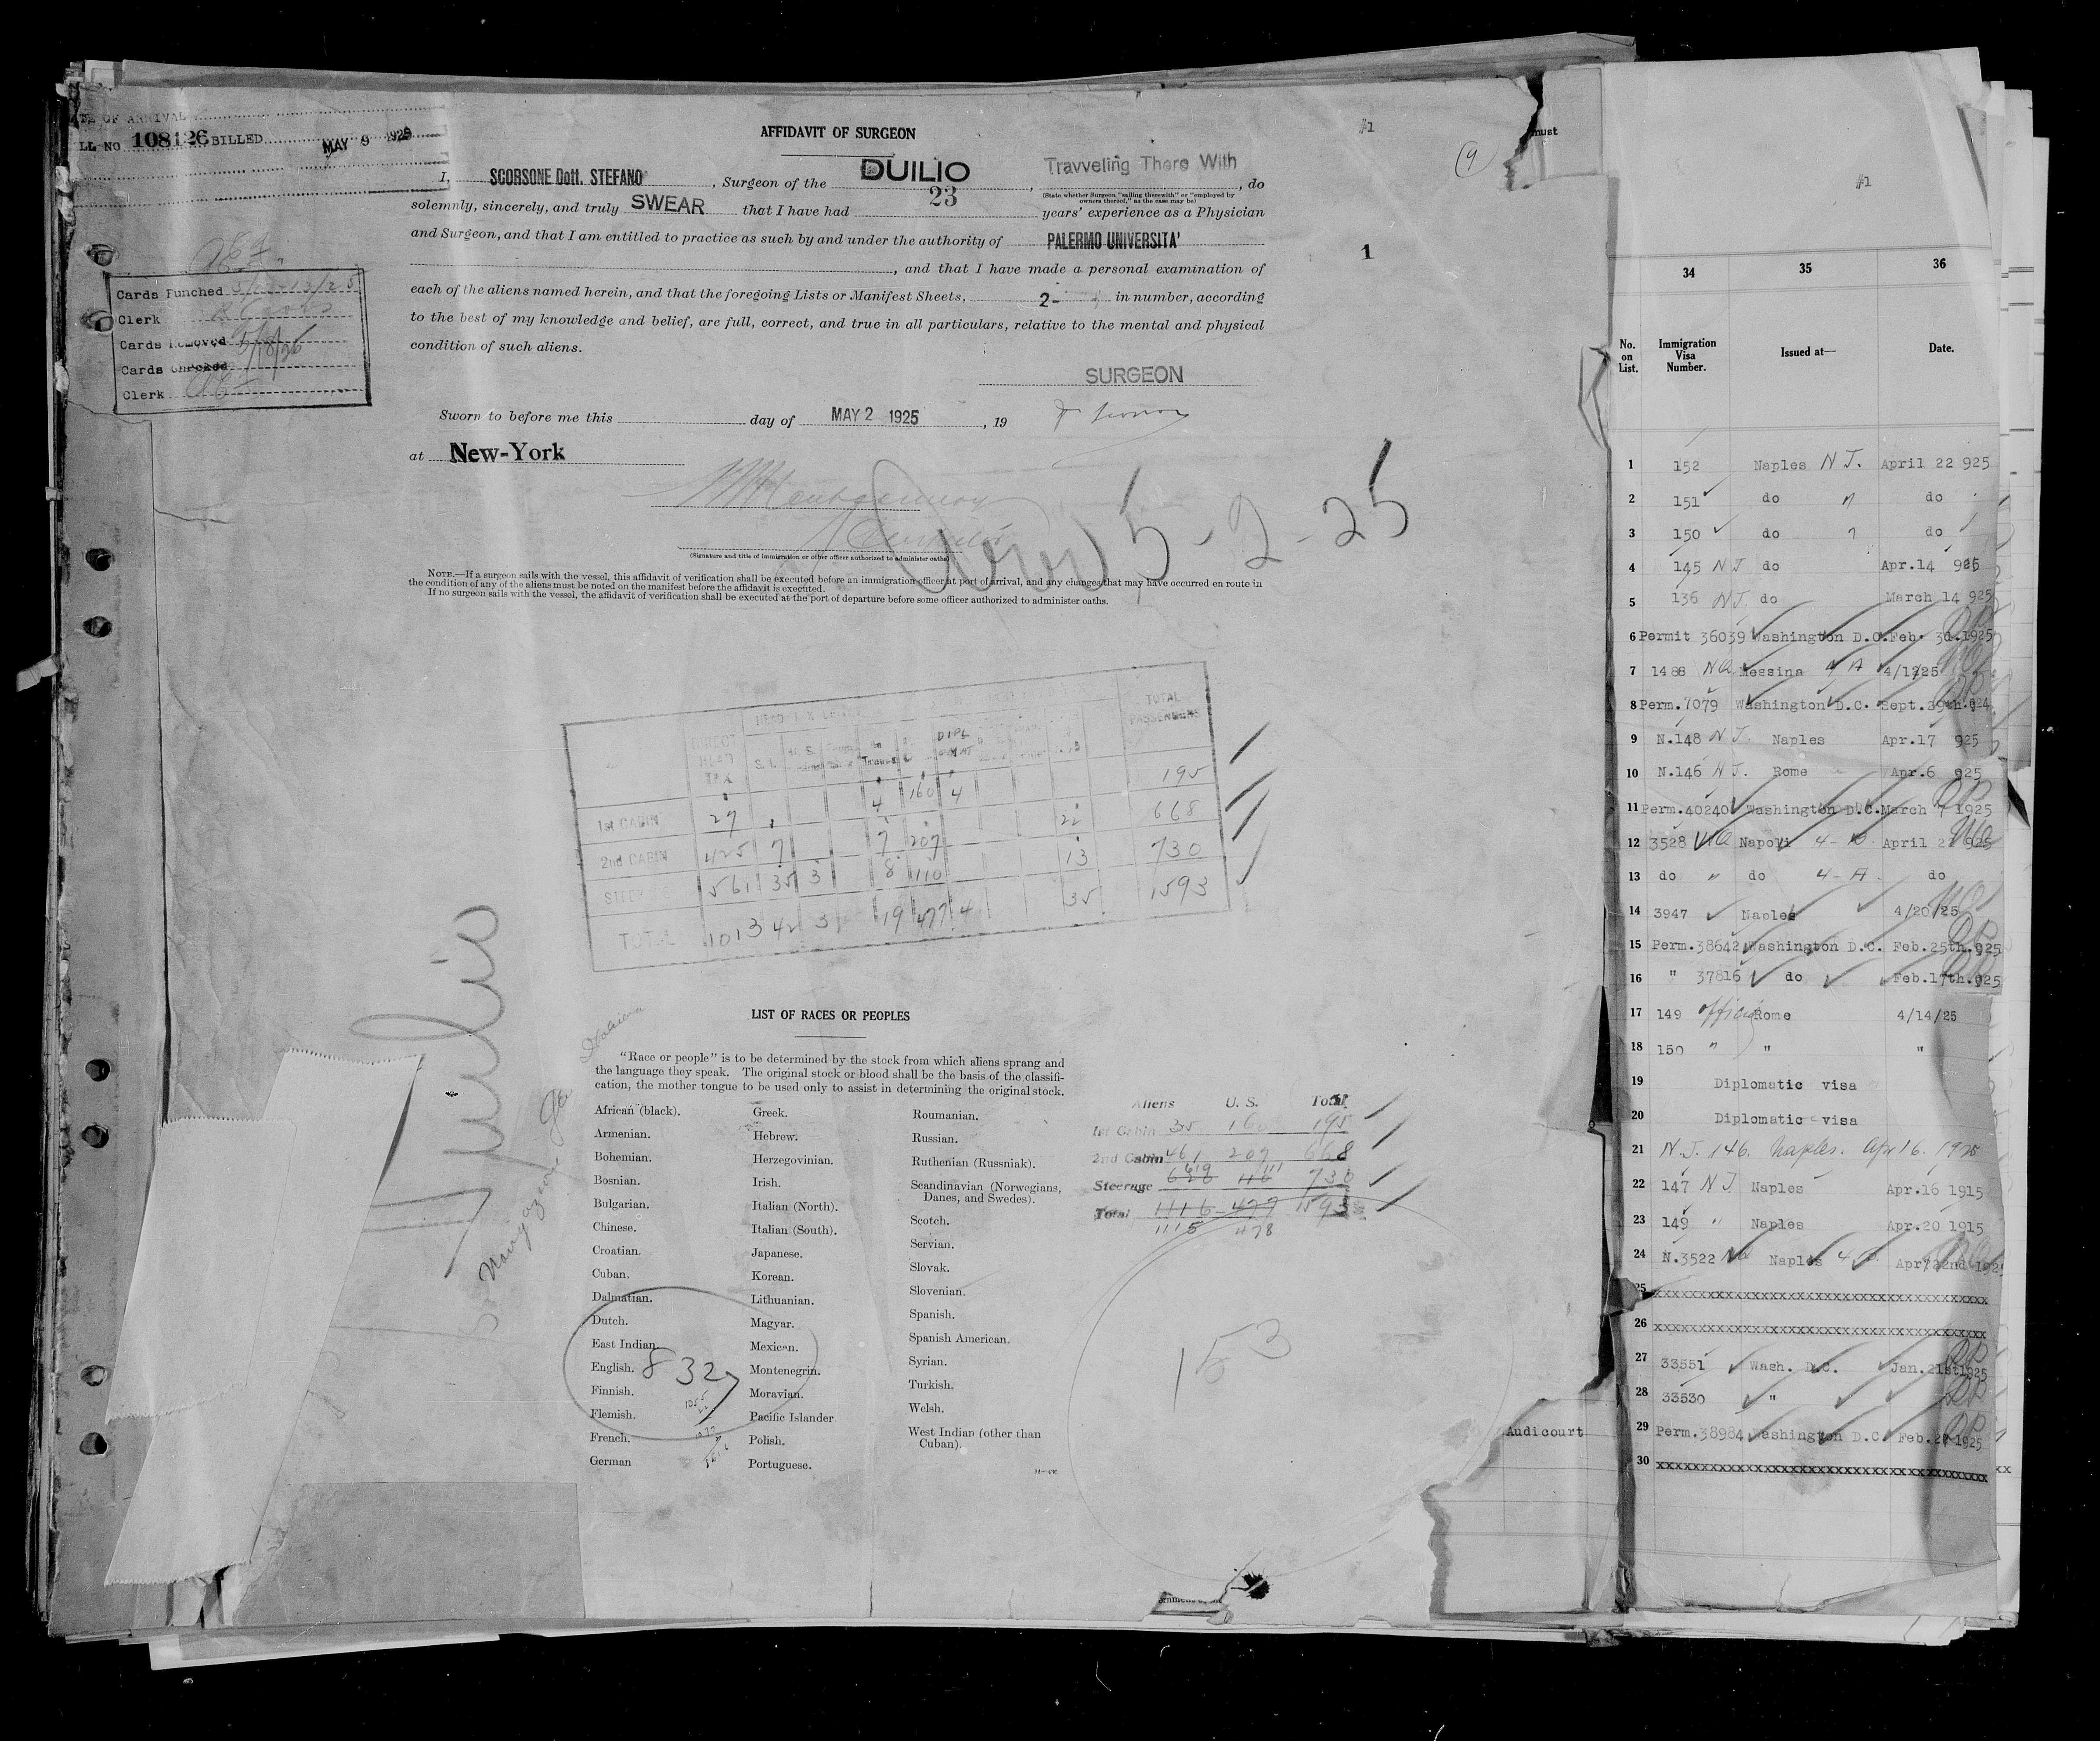 DATE OF ARRIVAL
LL NO 108126 BILLED MAY 9 1925
Cards Punched
Clerk
Cards Removed 5/18/26
Cards Checked
Clerk
AFFIDAVIT OF SURGEON
#1
(9)
must
I, SCORSONE Dott. STEFANO, Surgeon of the DUILIO, Travveling There With, do
(State whether Surgeon "sailing therewith" or "employed by owners thereof," as the case may be)
solemnly, sincerely, and truly SWEAR that I have had 23 years' experience as a Physician
and Surgeon, and that I am entitled to practice as such by and under the authority of PALERMO UNIVERSITA'
1
, and that I have made a personal examination of
each of the aliens named herein, and that the foregoing Lists or Manifest Sheets, 2- in number, according
to the best of my knowledge and belief, are full, correct, and true in all particulars, relative to the mental and physical
condition of such aliens.
SURGEON
Sworn to before me this day of MAY 2 1925, 19
at New-York
5-2-25
(Signature and title of immigration or other officer authorized to administer oaths)
NOTE.—If a surgeon sails with the vessel, this affidavit of verification shall be executed before an immigration officer at port of arrival, and any changes that may have occurred en route in
the condition of any of the aliens must be noted on the manifest before the affidavit is executed.
If no surgeon sails with the vessel, the affidavit of verification shall be executed at the port of departure before some officer authorized to administer oaths.
DIRECT HEAD TAX
TOTAL PASSENGERS
DIPL
1st CABIN 27 4 160 4 195
2nd CABIN 425 7 7 207 22 668
STEERAGE 561 35 3 8 110 13 730
TOTAL 1013 42 3 19 477 4 35 1593
Duilio
LIST OF RACES OR PEOPLES
"Race or people" is to be determined by the stock from which aliens sprang and
the language they speak. The original stock or blood shall be the basis of the classifi-
cation, the mother tongue to be used only to assist in determining the original stock.
African (black).
Armenian.
Bohemian.
Bosnian.
Bulgarian.
Chinese.
Croatian.
Cuban.
Dalmatian.
Dutch.
East Indian.
English.
Finnish.
Flemish.
French.
German
832
Greek.
Hebrew.
Herzegovinian.
Irish.
Italian (North).
Italian (South).
Japanese.
Korean.
Lithuanian.
Magyar.
Mexican.
Montenegrin.
Moravian.
Pacific Islander
Polish.
Portuguese.
Roumanian.
Russian.
Ruthenian (Russniak).
Scandinavian (Norwegians,
Danes, and Swedes).
Scotch.
Servian.
Slovak.
Slovenian.
Spanish.
Spanish American.
Syrian.
Turkish.
Welsh.
West Indian (other than
Cuban).
Aliens U. S. Total
1st Cabin 35 160 195
2nd Cabin 461 207 668
619 111
Steerage 620 110 730
Total 1116 477 1593
1115 478
153
Audicourt
#1
34 35 36
No. on List. Immigration Visa Number. Issued at— Date.
1 152 Naples N J. April 22 925
2 151 do " do
3 150 do " do
4 145 N J do Apr.14 925
5 136 N J. do March 14 925
6 Permit 36039 Washington D.C. Feb. 3d.1925
7 1488 NQ Messina 4 A 4/1925
8 Perm.7079 Washington D.C. Sept.29th.924
9 N.148 N J. Naples Apr.17 925
10 N.146 N J. Rome Apr.6 925
11 Perm.40240 Washington D.C. March 7 1925
12 3528 NQ Napoli 4-D April 2 925
13 do " do 4-A. do
14 3947 Naples 4/20/25
15 Perm.38642 Washington D.C. Feb.25th.925
16 " 37816 do Feb.17th.925
17 149 official Rome 4/14/25
18 150 " " "
19 Diplomatic visa
20 Diplomatic visa
21 N.J. 146. Naples. Apr 16. 1925
22 147 N J Naples Apr.16 1915
23 149 " Naples Apr.20 1915
24 N.3522 NQ Naples 4 Apr 22nd 192
25 xxxxxxxxxxxxxxxxxxxxxxxxxxxxxxxxxxxxxxx
26 xxxxxxxxxxxxxxxxxxxxxxxxxxxxxxxxxxxxxxx
27 33551 Wash. D.C. Jan.21st1925
28 33530 "
29 Perm.38984 Washington D.C Feb.27 1925
30 xxxxxxxxxxxxxxxxxxxxxxxxxxxxxxxxxxxxxxx